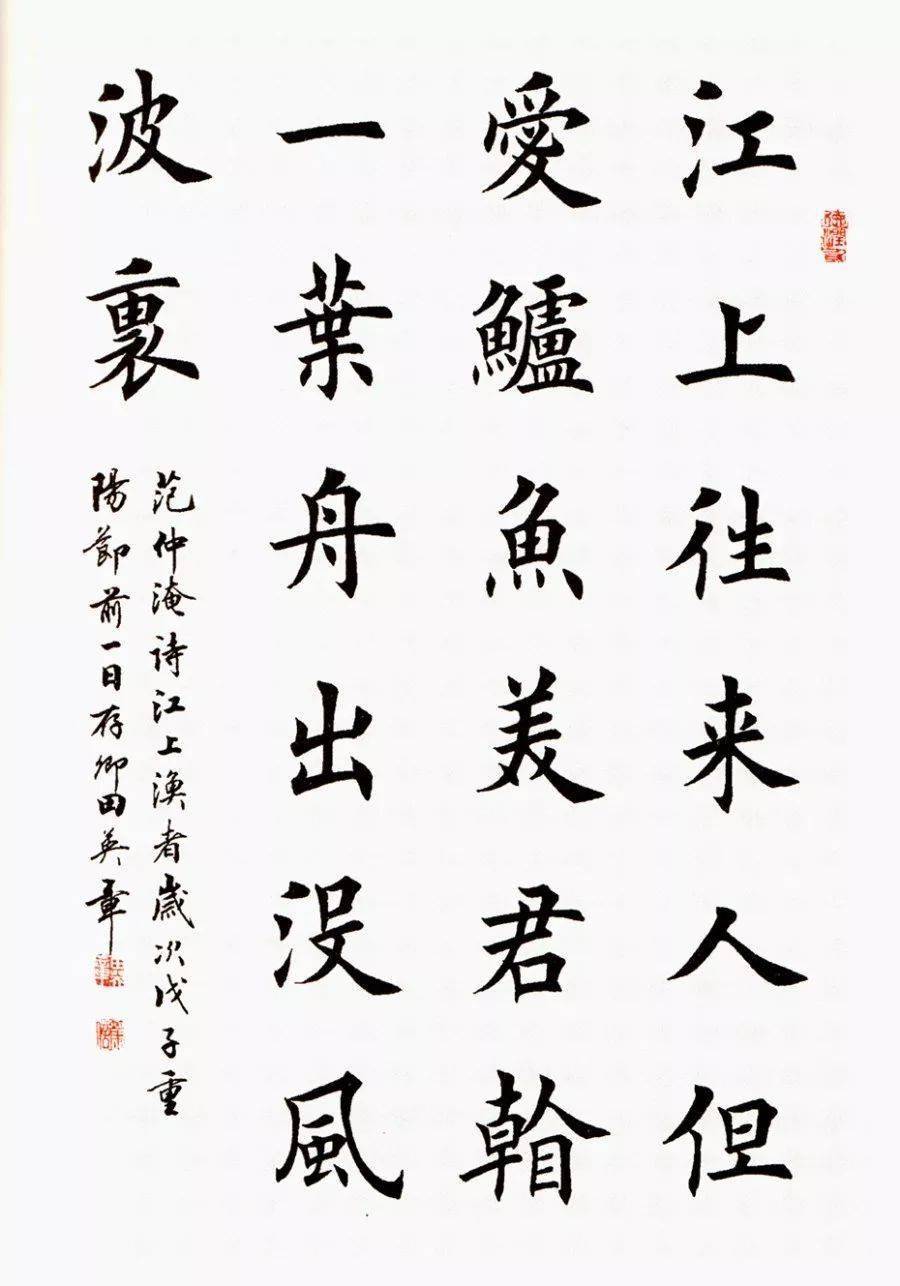 江上徃来人但
愛鱸魚美君看
一葉舟出没風
波裏
范仲淹诗江上漁者歲次戊子重
陽節前一日存卿田英章